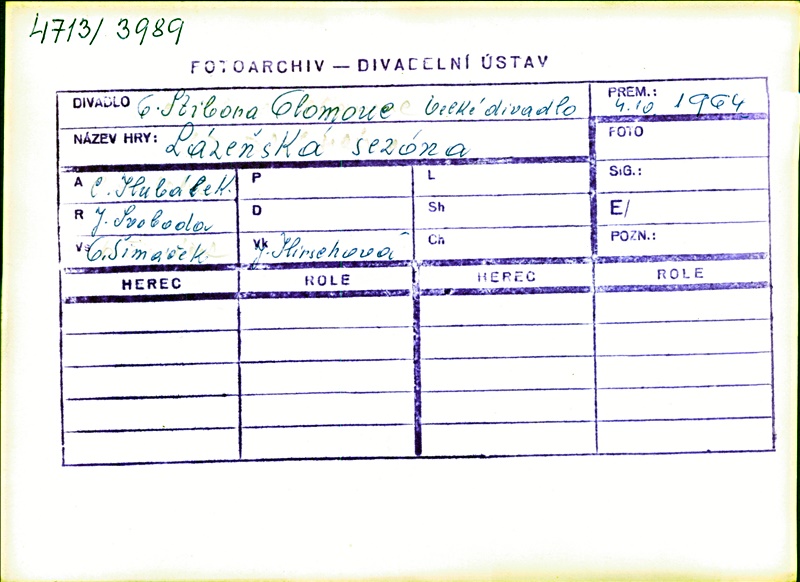 4713/ 3989
FOTOARCHIV — DIVADELNÍ ÚSTAV
DIVADLO O. Stibora Olomouc Velké divadlo
PREM.: 4.10 1964
NÁZEV HRY: Lázeňská sezóna
FOTO
A C. Hubálek.
P
L
SIG.:
R J. Svoboda
D
Sh
E/
Vs O. Šimáček
Vk J. Hirschová
Ch
POZN.:
HEREC ROLE HEREC ROLE